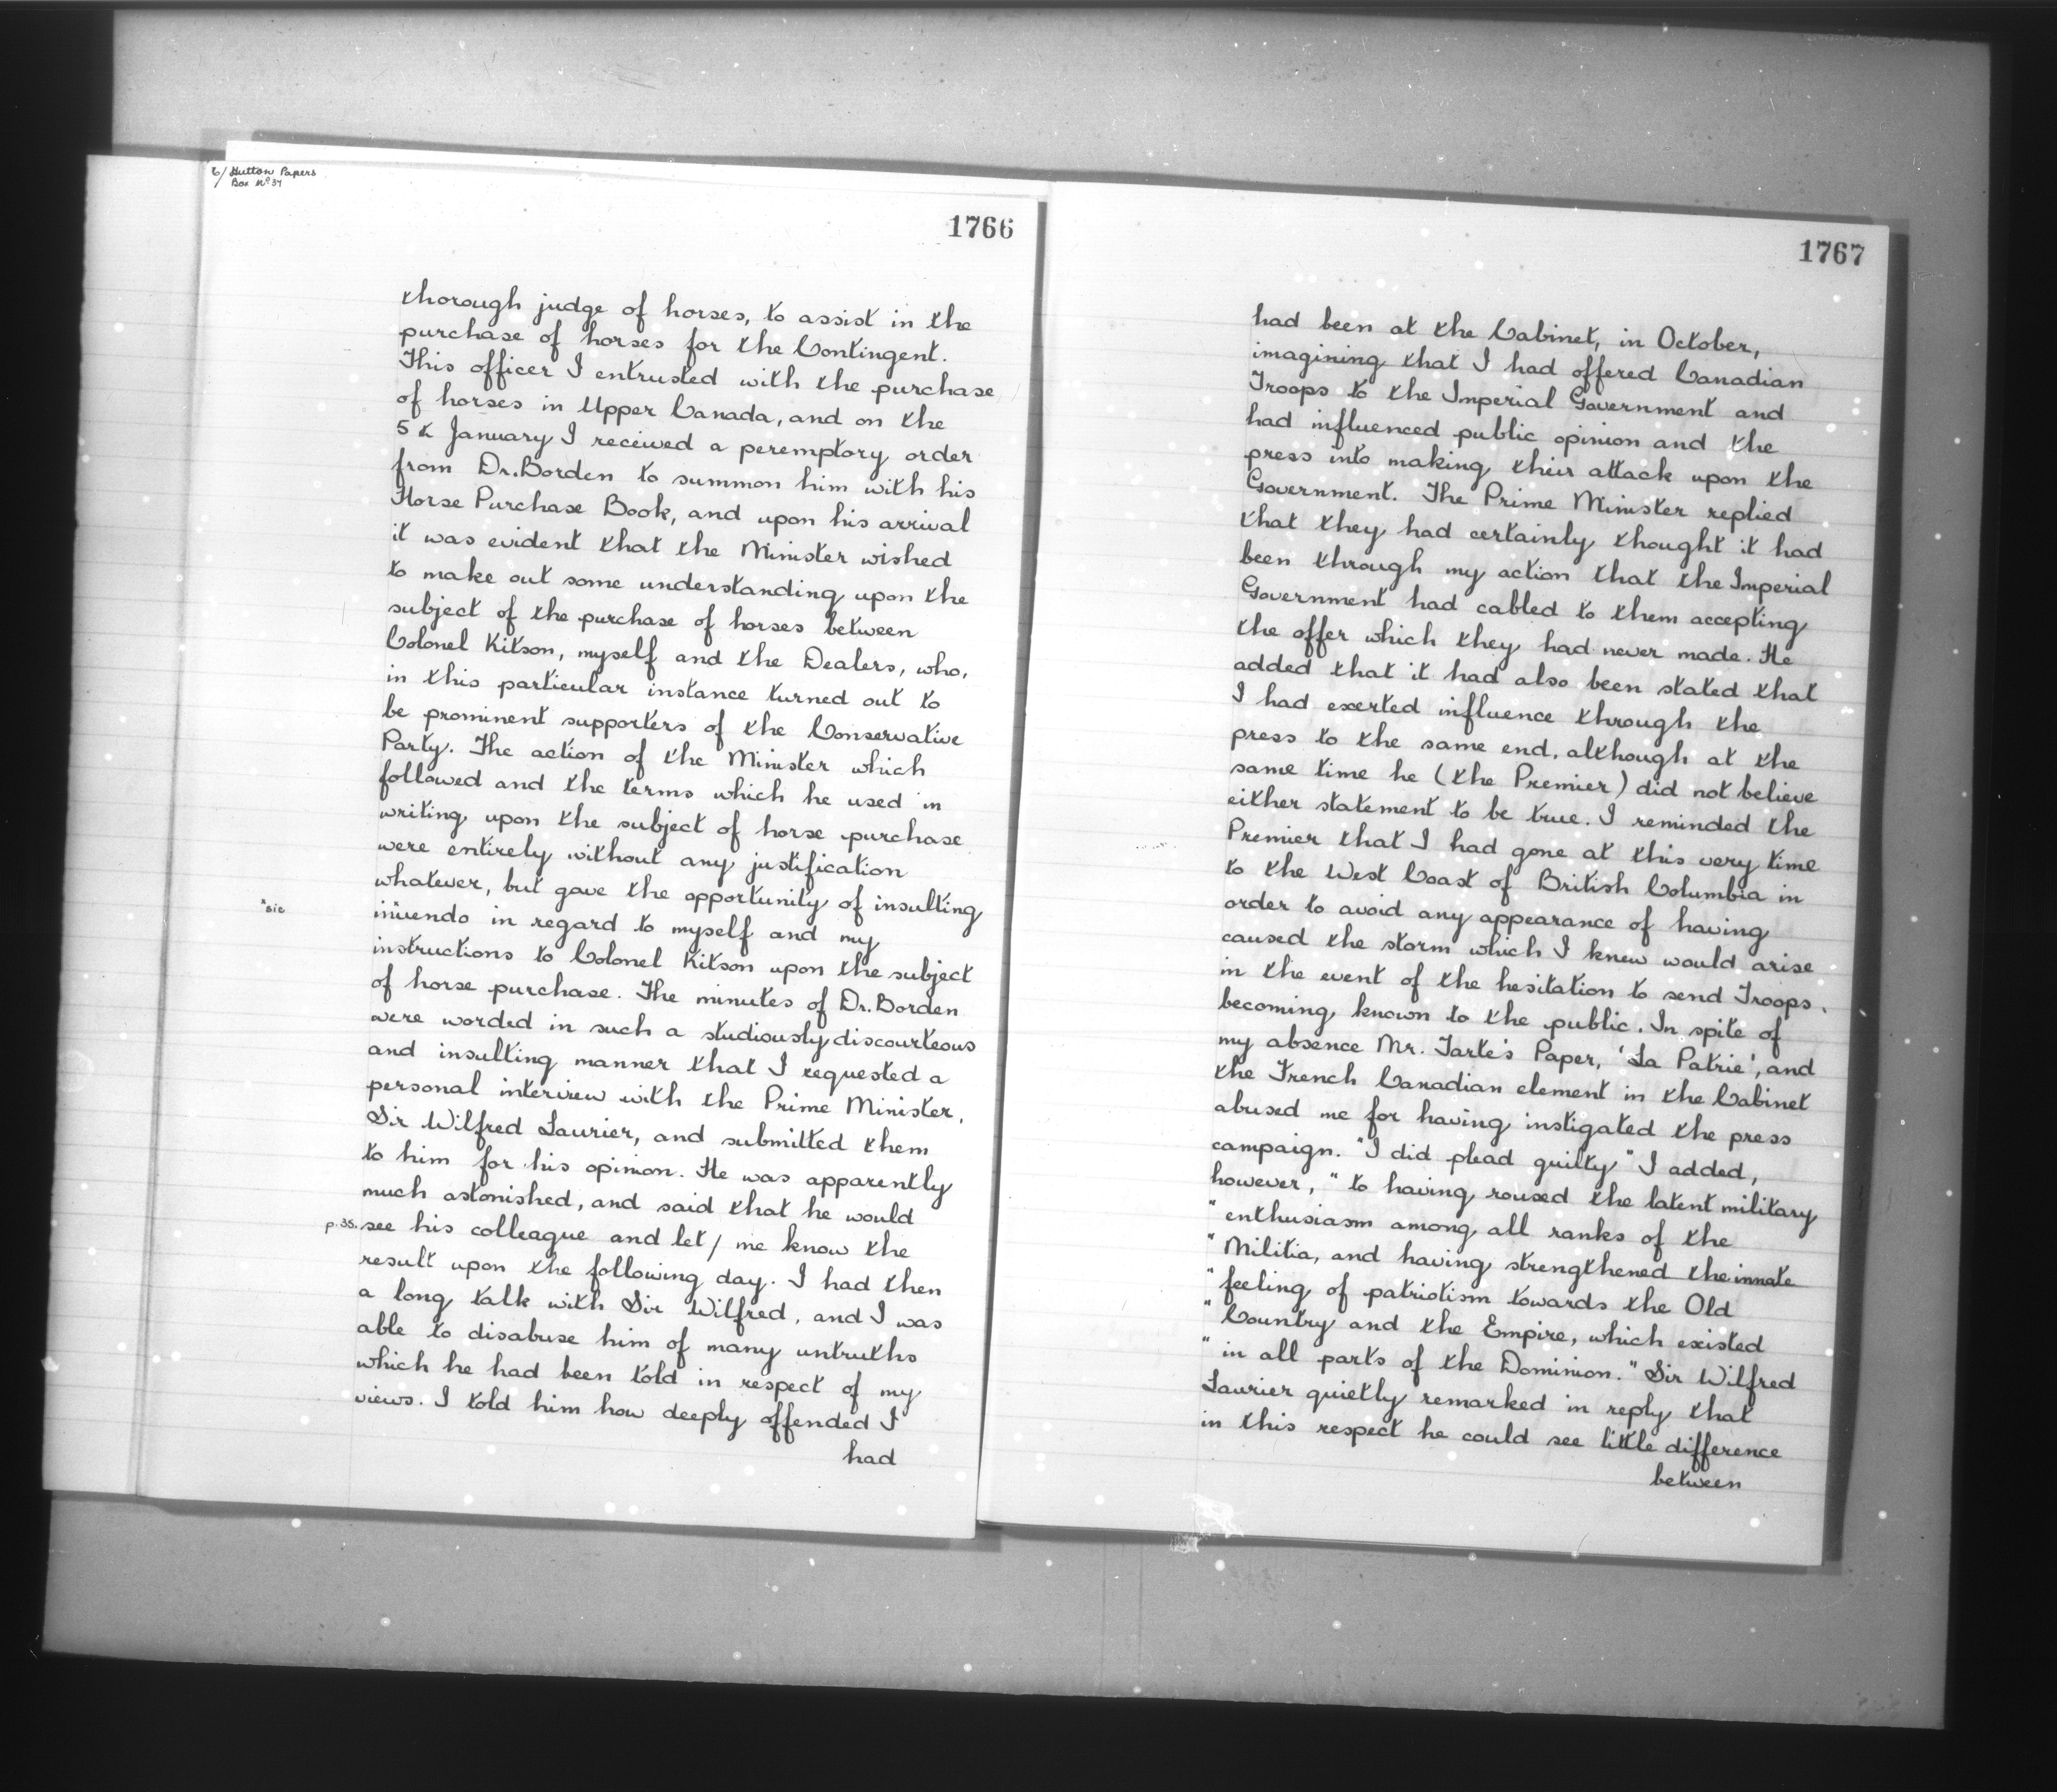 6/ Hutton Papers
Box No 34
1766
thorough judge of horses, to assist in the
purchase of horses for the Contingent.
This officer I entrusted with the purchase
of horses in Upper Canada, and on the
5th January I received a peremptory order
from Dr. Borden to summon him with his
Horse Purchase Book, and upon his arrival
it was evident that the Minister wished
to make out some understanding upon the
subject of the purchase of horses between
Colonel Kitson, myself and the Dealers, who,
in this particular instance turned out to
be prominent supporters of the Conservative
Party. The action of the Minister which
followed and the terms which he used in
writing upon the subject of horse purchase
were entirely without any justification
whatever, but gave the opportunity of insulting
"sic
inuendo in regard to myself and my
instructions to Colonel Kitson upon the subject
of horse purchase. The minutes of Dr. Borden
were worded in such a studiously discourteous
and insulting manner that I requested a
personal interview with the Prime Minister,
Sir Wilfred Laurier, and submitted them
to him for his opinion. He was apparently
much astonished, and said that he would
p. 35. see his colleague and let / me know the
result upon the following day. I had then
a long talk with Sir Wilfred, and I was
able to disabuse him of many untruths
which he had been told in respect of my
views. I told him how deeply offended I
had
1767
had been at the Cabinet, in October,
imagining that I had offered Canadian
Troops to the Imperial Government and
had influenced public opinion and the
press into making their attack upon the
Government. The Prime Minister replied
that they had certainly thought it had
been through my action that the Imperial
Government had cabled to them accepting
the offer which they had never made. He
added that it had also been stated that
I had exerted influence through the
press to the same end, although at the
same time he (the Premier) did not believe
either statement to be true. I reminded the
Premier that I had gone at this very time
to the West Coast of British Columbia in
order to avoid any appearance of having
caused the storm which I knew would arise
in the event of the hesitation to send Troops
becoming known to the public. In spite of
my absence Mr. Tarte's Paper, 'La Patrie', and
the French Canadian element in the Cabinet
abused me for having instigated the press
campaign. "I did plead guilty" I added,
however, "to having roused the latent military
"enthusiasm among all ranks of the
"Militia, and having strengthened the innate
"feeling of patriotism towards the Old
"Country and the Empire, which existed
"in all parts of the Dominion." Sir Wilfred
Laurier quietly remarked in reply that
in this respect he could see little difference
between